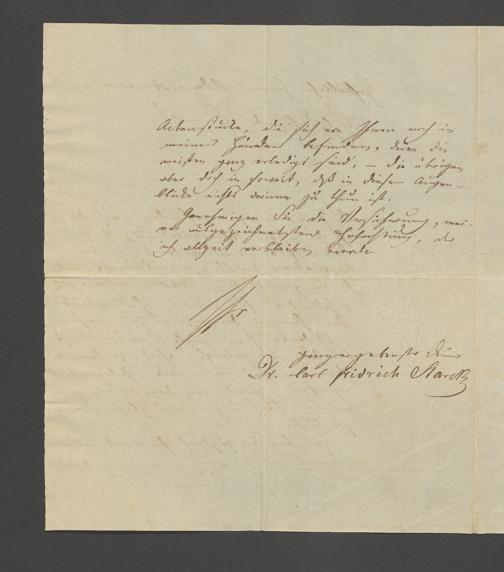 Actenstücke, die sich von Ihnen noch in
meinen Händen befinden, deren die
meisten ganz erledigt sind, – die übrigen
aber doch in soweit, daß in diesem Augen-
blicke nichts darinn zu thun ist.
Genehmigen Sie die Versicherung, mei-
ner ausgezeichnetsten Hochachtung, der
ich allzeit verbleiben werde
Ihr
ganz ergebenster Diener
Dr. Carl Fridrich Starck